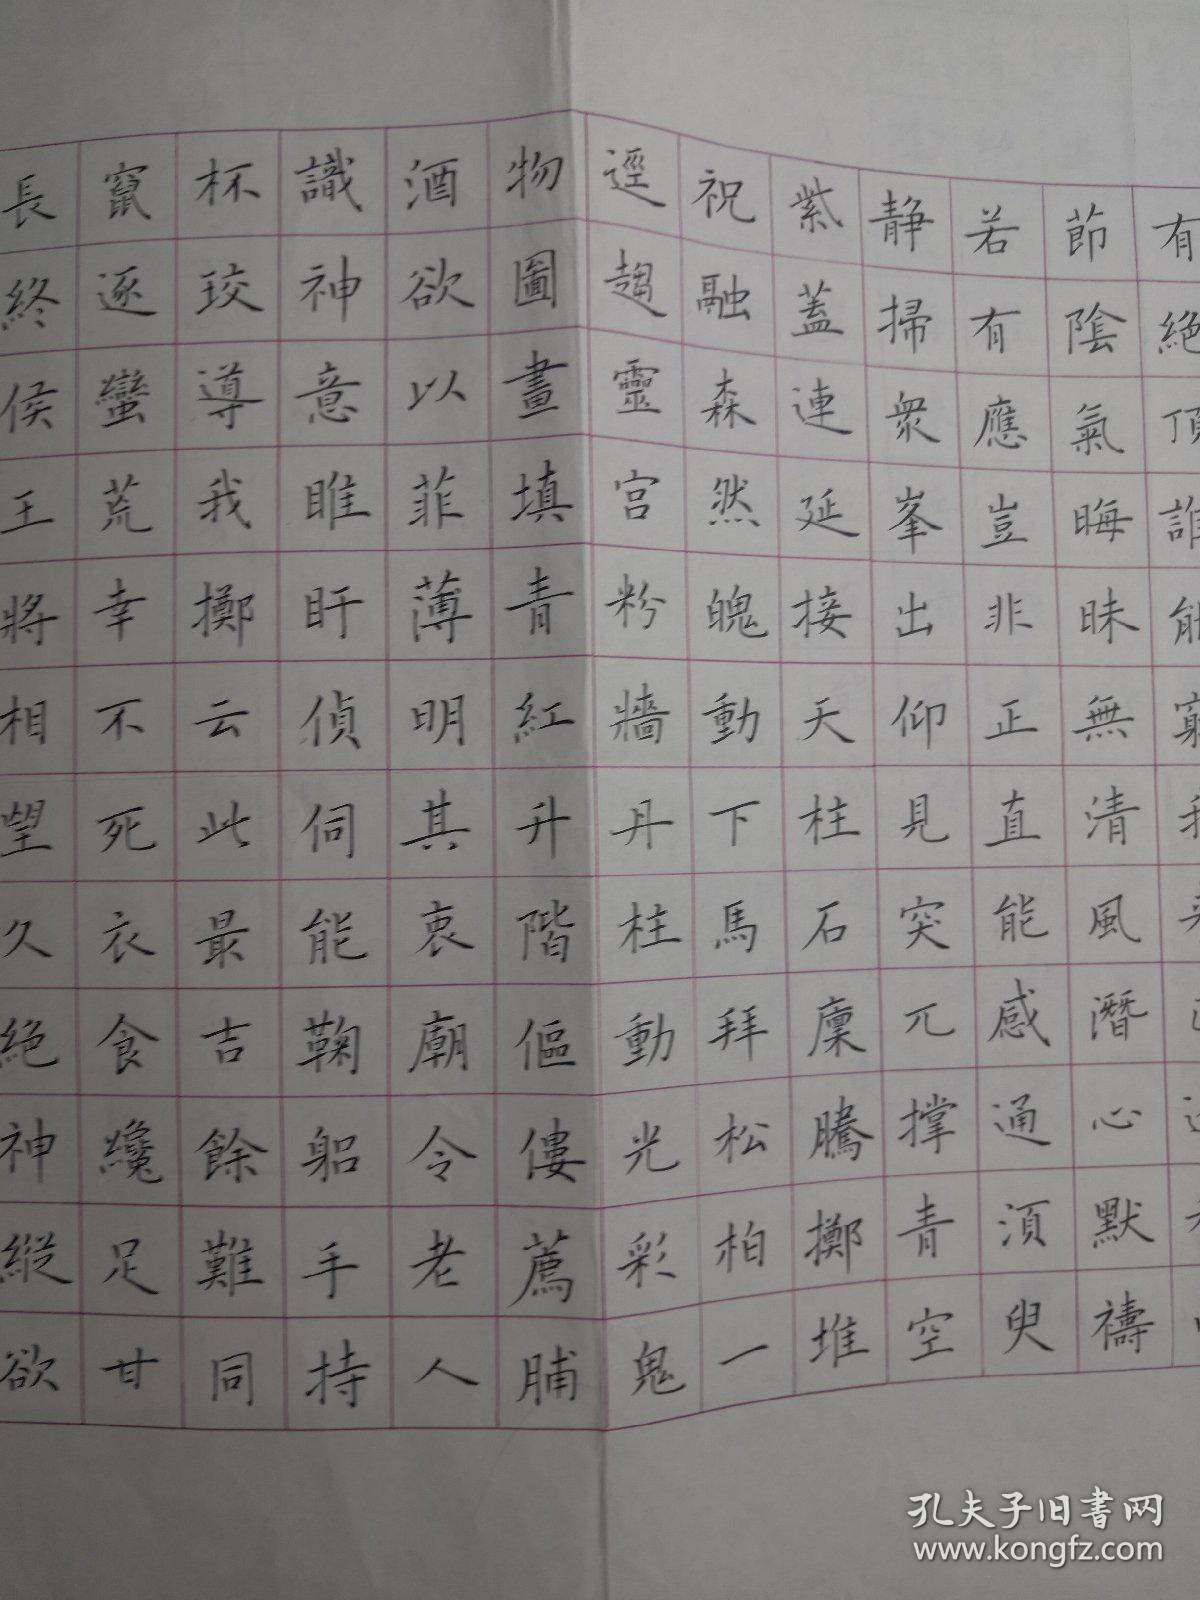 有絶頂誰能窮我來
節陰氣晦昧無清風潛心默禱
若有應豈非正直能感通須臾
静掃衆峯出仰見突兀撑青空
紫蓋連延接天柱石廩騰擲堆
祝融森然魄動下馬拜松柏一
逕趨靈宫粉牆丹柱動光彩鬼
物圖畫填青紅升階傴僂薦脯
酒欲以菲薄明其衷廟令老人
識神意睢盱偵伺能鞠躬手持
杯珓導我擲云此最吉餘難同
竄逐蠻荒幸不死衣食纔足甘
長終侯王將相望久絶神縱欲
孔夫子旧书网
www.kongfz.com